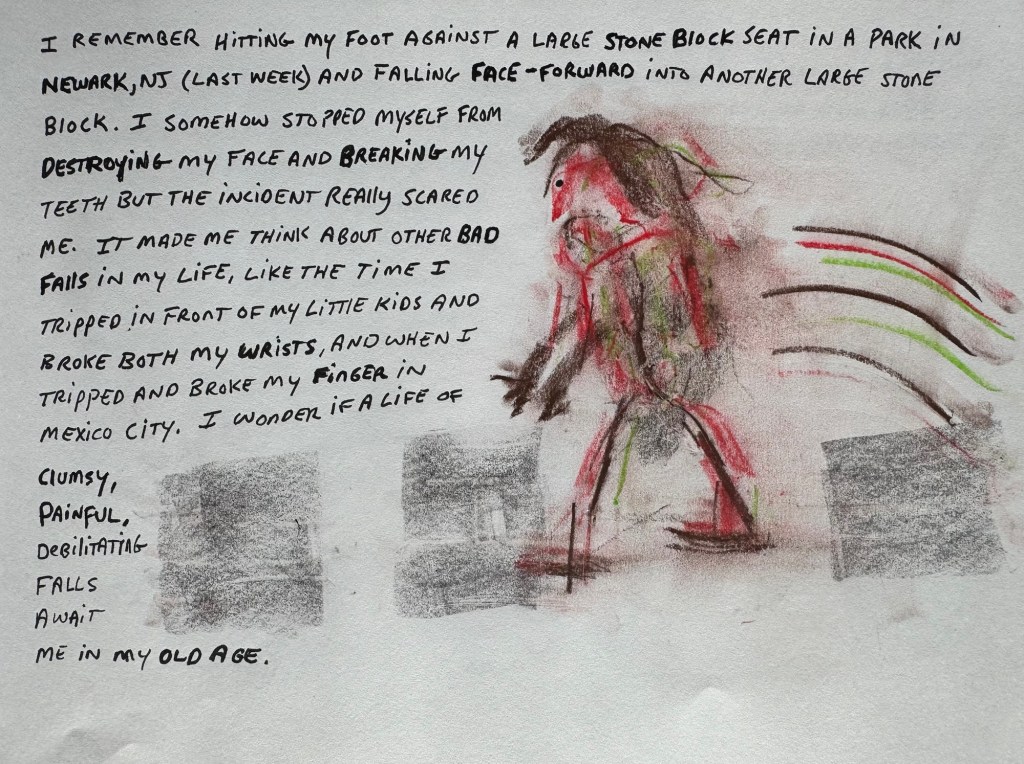 I REMEMBER HITTING MY FOOT AGAINST A LARGE STONE BLOCK SEAT IN A PARK IN
NEWARK, NJ (LAST WEEK) AND FALLING FACE-FORWARD INTO ANOTHER LARGE STONE
BLOCK. I SOMEHOW STOPPED MYSELF FROM
DESTROYING MY FACE AND BREAKING MY
TEETH BUT THE INCIDENT REALLY SCARED
ME. IT MADE ME THINK ABOUT OTHER BAD
FALLS IN MY LIFE, LIKE THE TIME I
TRIPPED IN FRONT OF MY LITTLE KIDS AND
BROKE BOTH MY WRISTS, AND WHEN I
TRIPPED AND BROKE MY FINGER IN
MEXICO CITY. I WONDER IF A LIFE OF
CLUMSY,
PAINFUL,
DEBILITATING
FALLS
AWAIT
ME IN MY OLD AGE.